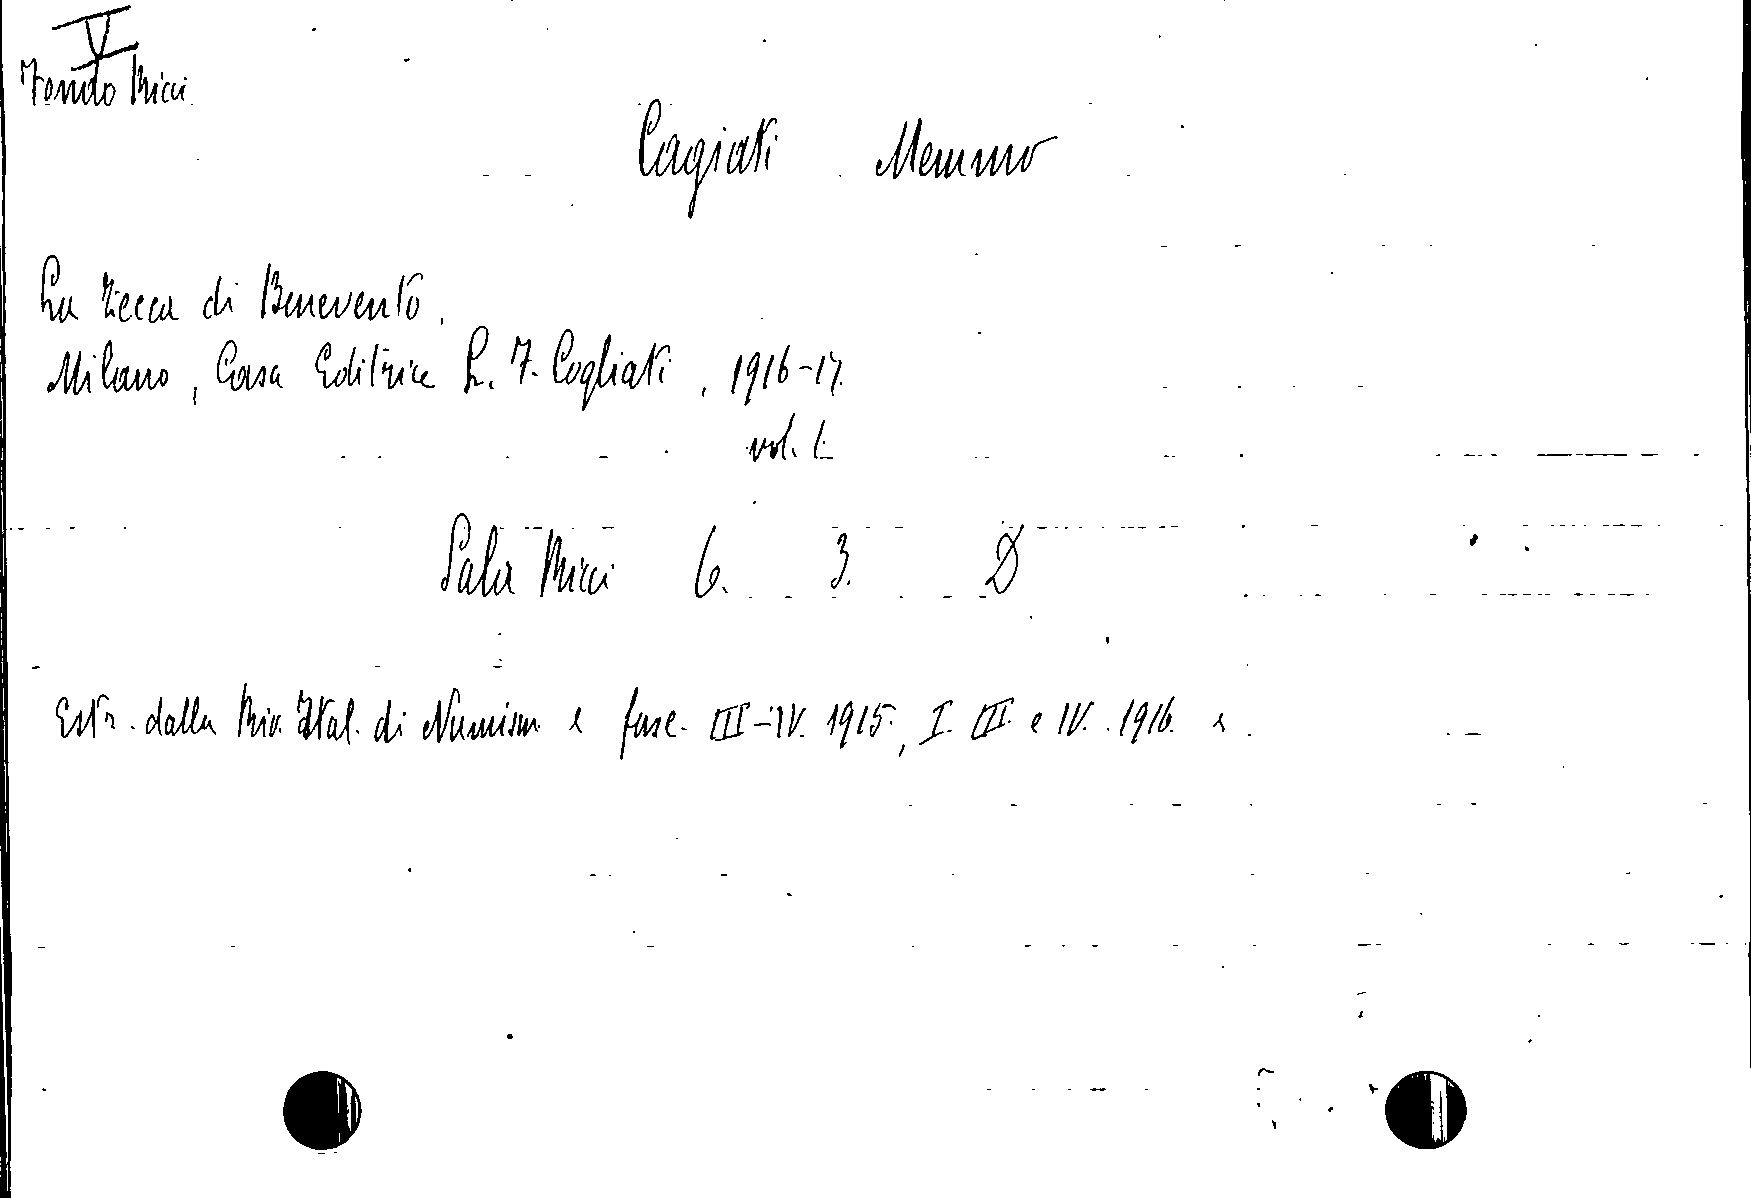 V
Fondo Ricci
Cagiati Memmo
La Zecca di Benevento.
Milano, Casa Editrice L. F. Cogliati, 1916-17.
vol. 1.
Sala Ricci 6. 3. D
Estr. dalla Riv. Ital. di Numism. e fasc. III-IV. 1915, I. III e IV. 1916.